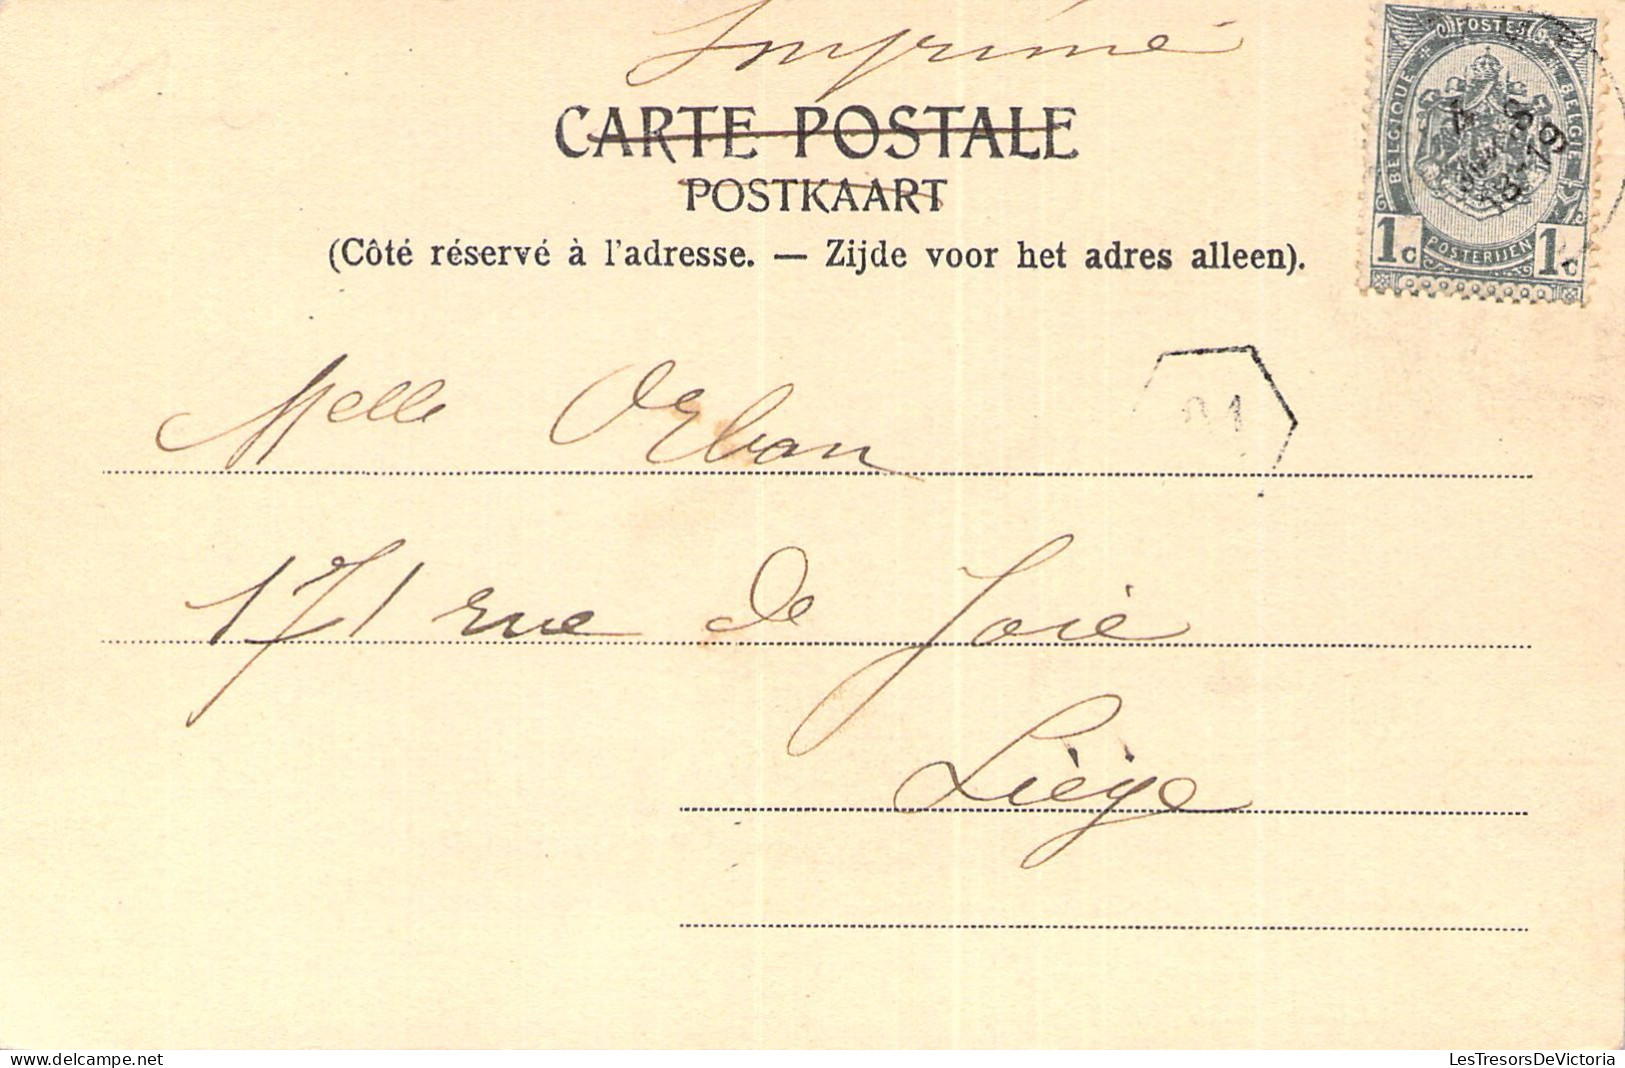 Imprimé
CARTE POSTALE
POSTKAART
(Côté réservé à l'adresse. — Zijde voor het adres alleen).
POSTES
BELGIQUE
BELGIE
1c POSTERIJEN 1c
Melle Orban
171 rue de Joie
Liège
delcampe.net
LesTresorsDeVictoria